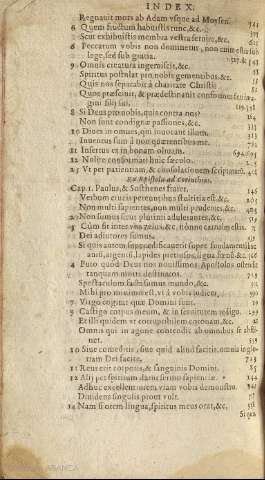 INDEX.
Regnauit mors ab Adam vsque ad Moysen.
6 Quem fructum habuistis tunc, &c.
7 Sicut exhibuistis membra vestra seruire, &c.
8 Peccatum vobis non dominetur, non enim estis sub
lege, sed sub gratia.
9 Omnis creatura ingemiscit, &c.
Spiritus postulat pro nobis gemenitbus. &c.
Quis nos separabit à charitate Christi
Quos præsciuit, & prædestinauit conformes
gini filij sui.
8 Si Deus pro nobis, quis contra nos?
Non sunt condignæ passiones, &c.
10 Diues in omnes, qui inuocant illum. 313
Inuentus sum à non quærentibus me.
11 Insertus es in bonam oliuam.
12 Nolite conformari huic sæculo. 225
25 Vt per patientiam, & consolationem scripturarũ. 402
Ex Epistola ad Corinthios.
Cap. 1. Paulus, & Sosthenes frater. 146
Verbum crucis pereuntibus stultitia est, &c. 203
Non multi sapientes, non multi prudentes, &c. 403
20 Non sumus sicut plurimi adulterantes, &c.
3 Cùm sit inter vos zelus, &c. nonne carnales estis.
Dei adiutores sumus.
Si quis autem superædificauerit supra fundamentũ hoc
aurũ, argentũ, lapides pretiosos, ligna, fœnũ &c. 166
4 Puto quod Deus nos nouissimos Apostolos ostendit
tanquam morti destinatos. 723
Spectaculum facti sumus mundo, &c.
Mihi pro minimo est, vt à vobis iudicer,
7 Virgo cogitat quæ Domini sunt. 19
9 Castigo corpus meum, & in seruitutem redigo. 299
Et illi quidem vt corruptibilem coronam, &c. 86
Omnis qui in agone contendit ab omnibus se absti-
net. 539
10 Siue comeditis, siue quid aliud facitis, omnia in glo-
riam Dei facite. 723
11 Reus erit corporis, & sanguinis Domini. 85
12 Alij per spiritum datur sermo sapientiæ. 144
Adhuc excellentiorem viam vobis demonstro. 346
Diuidens singulis prout vult. 37
14 Nam si orem lingua, spiritus meus orat, &c.
Si quis